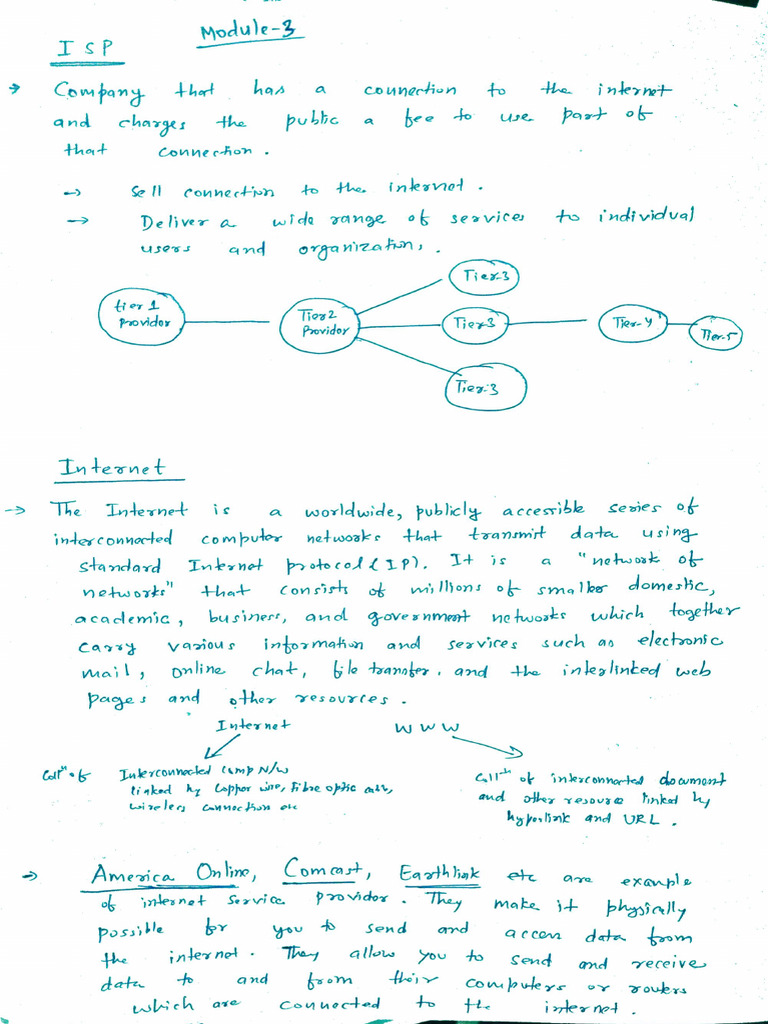 Module-3
ISP
→ Company that has a connection to the internet
and charges the public a fee to use part of
that connection.
→ Sell connection to the internet.
→ Deliver a wide range of services to individual
users and organizations.
Tier-3
tier 1
Providor
Tier 2
Providor
Tier-3
Tier-4
Tier-5
Tier-3
Internet
→ The Internet is a worldwide, publicly accessible series of
interconnected computer networks that transmit data using
standard Internet protocol (IP). It is a "network of
networks" that consists of millions of smaller domestic,
academic, business, and government networks which together
carry various information and services such as electronic
mail, online chat, file transfer, and the interlinked web
pages and other resources.
Internet WWW
Collⁿ of Interconnected Comp N/W
linked by Copper wire, Fibre optic cable,
wireless connection etc
Collⁿ of interconnected document
and other resource linked by
hyperlink and URL.
→ America Online, Comcast, Earthlink etc are example
of internet service providor. They make it physically
possible for you to send and access data from
the internet. They allow you to send and receive
data to and from their computers or routers
which are connected to the internet.